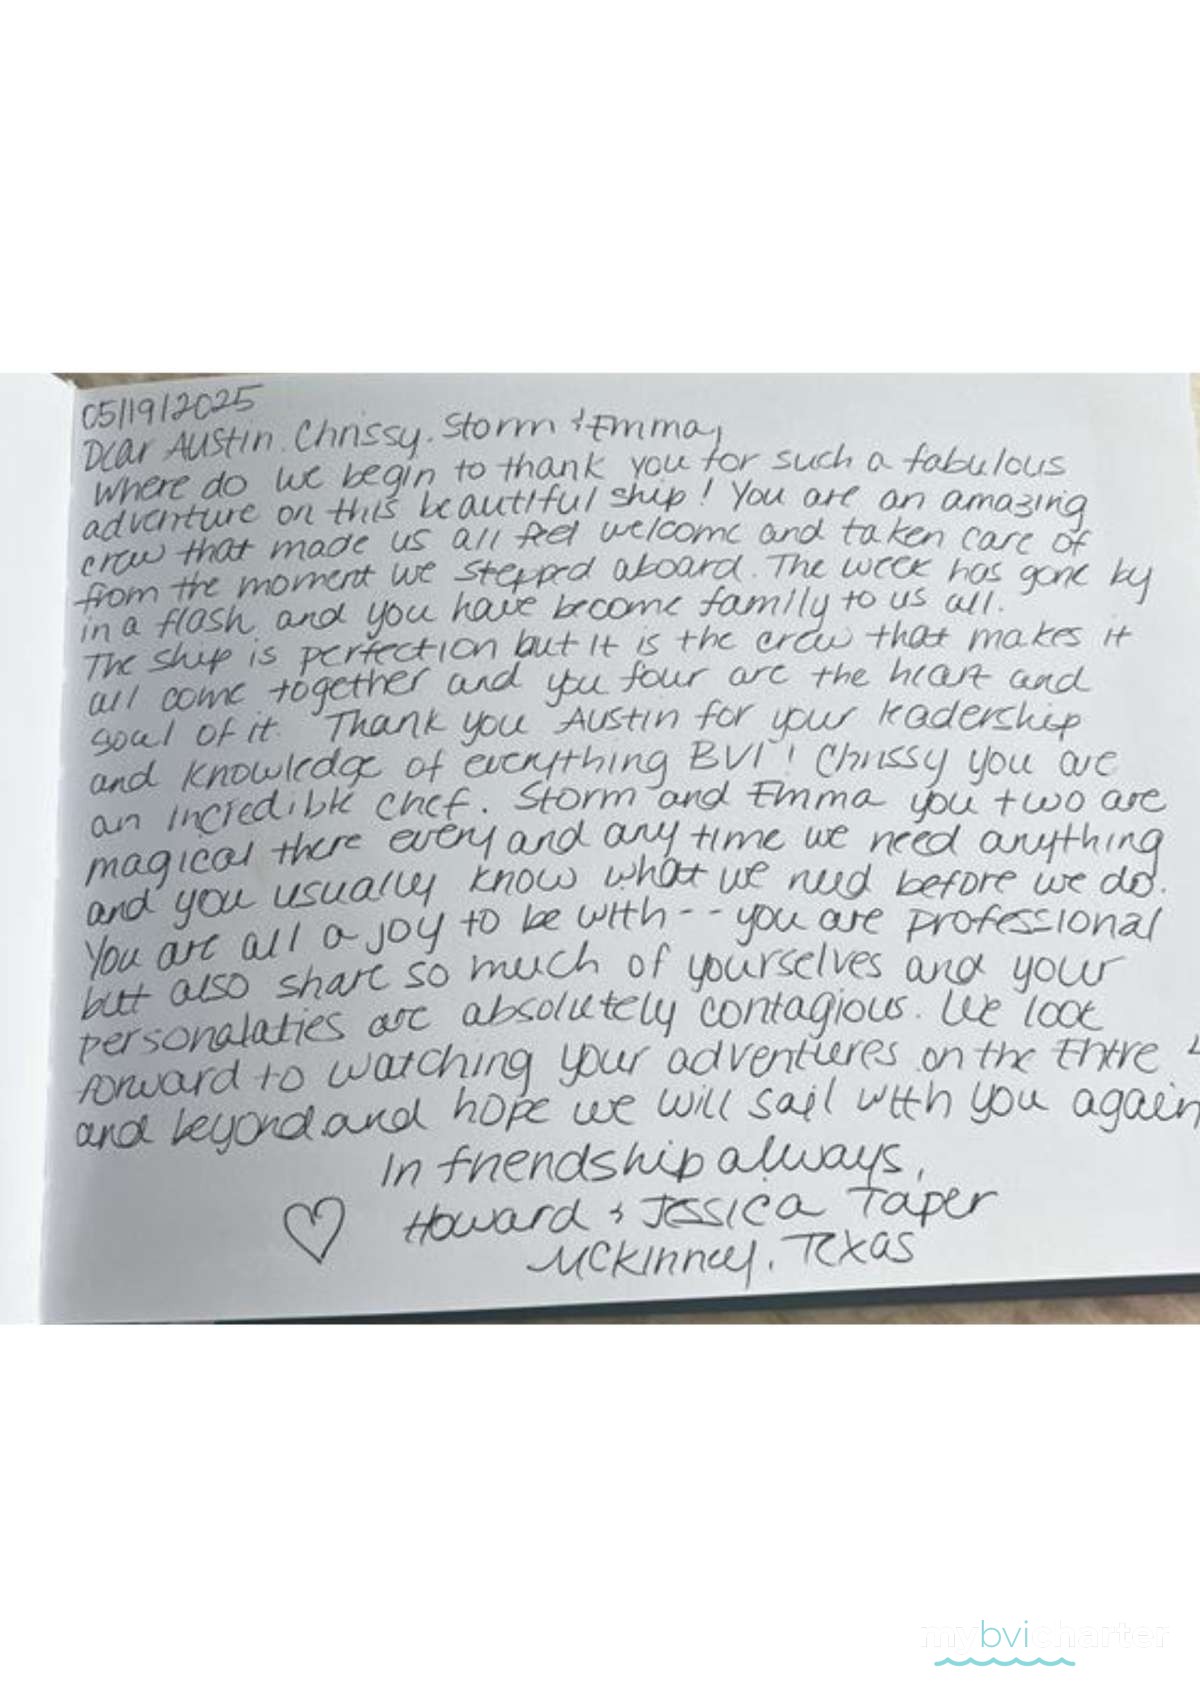 05/19/2025
Dear Austin, Chrissy, Storm & Emma,
Where do we begin to thank you for such a fabulous
adventure on this beautiful ship! You are an amazing
crew that made us all feel welcome and taken care of
from the moment we stepped aboard. The week has gone by
in a flash and you have become family to us all.
The ship is perfection but it is the crew that makes it
all come together and you four are the heart and
soul of it. Thank you Austin for your leadership
and knowledge of everything BVI! Chrissy you are
an incredible chef. Storm and Emma you two are
magical there every and any time we need anything
and you usually know what we need before we do.
You are all a joy to be with -- you are professional
but also share so much of yourselves and your
personalaties are absolutely contagious. We look
forward to watching your adventures on the Entre
and beyond and hope we will sail with you again
In friendship always,
Howard & Jessica Taper
McKinney, Texas
mybvicharter